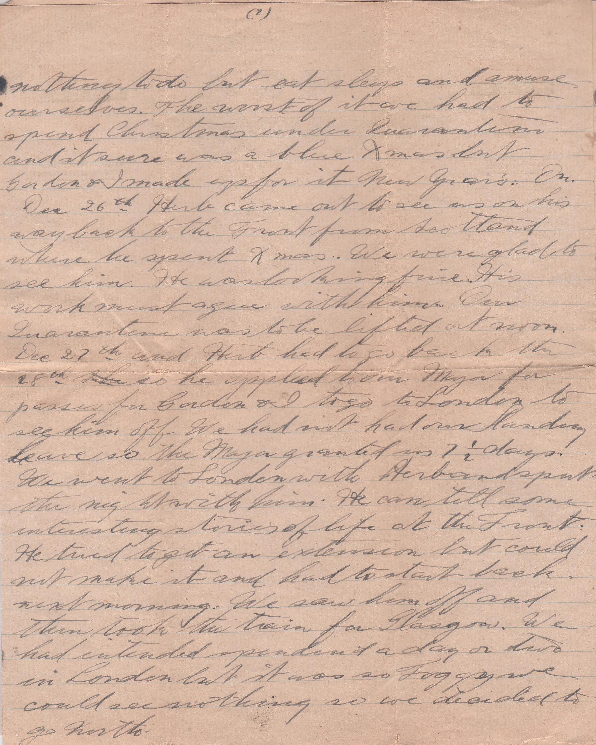 (2)
nothing to do but eat sleep and amuse
ourselves. The worst of it we had to
spend Christmas under Quarantine
and it sure was a blue Xmas but
Gordon & I made up for it New Years. On
Dec 26th Herb came out to see us on his
way back to the Front from Scotland
where he spent Xmas. We were glad to
see him. He was looking fine. His
work must agree with him. Our
Quarantine was to be lifted at noon
Dec 27th and Herb had to go back the
28th so he applied to our Major for
passes for Gordon & I to go to London to
see him off. We had not had our landing
leave so the Major granted us 7 1/2 days.
We went to London with Herb and spent
the night with him. He can tell some
interesting stories of life at the Front.
He tried to get an extension but could
not make it and had to start back
next morning. We saw him off and
then took the train for Glasgow. We
had intended spending a day or two
in London but it was so foggy we
could see nothing so we decided to
go North